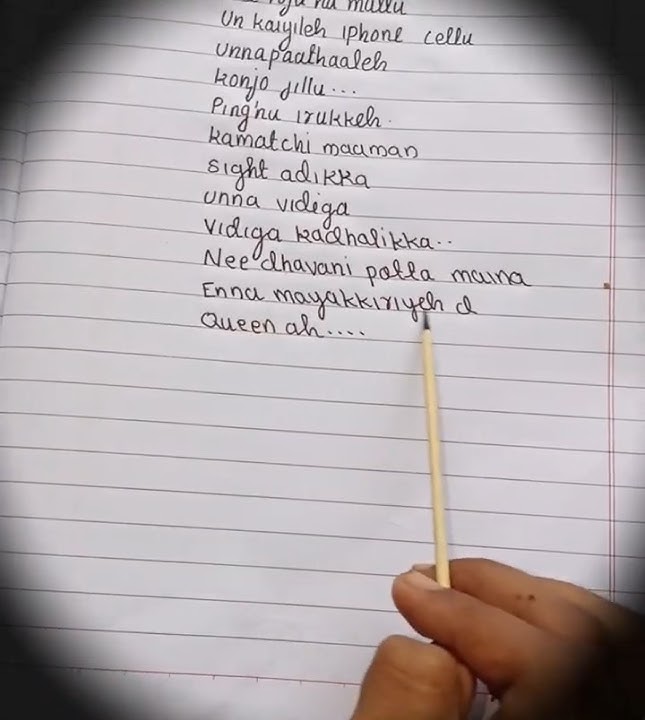 nu mullu
Un kaiyileh iphone cellu
unnapaathaaleh
konjo jillu...
Ping'nu irukkeh.
kamatchi maaman
sight adikka
unna vidiga
vidiga kadhalikka..
Nee dhavani potta maina
Enna mayakkiriyeh d
Queen ah....